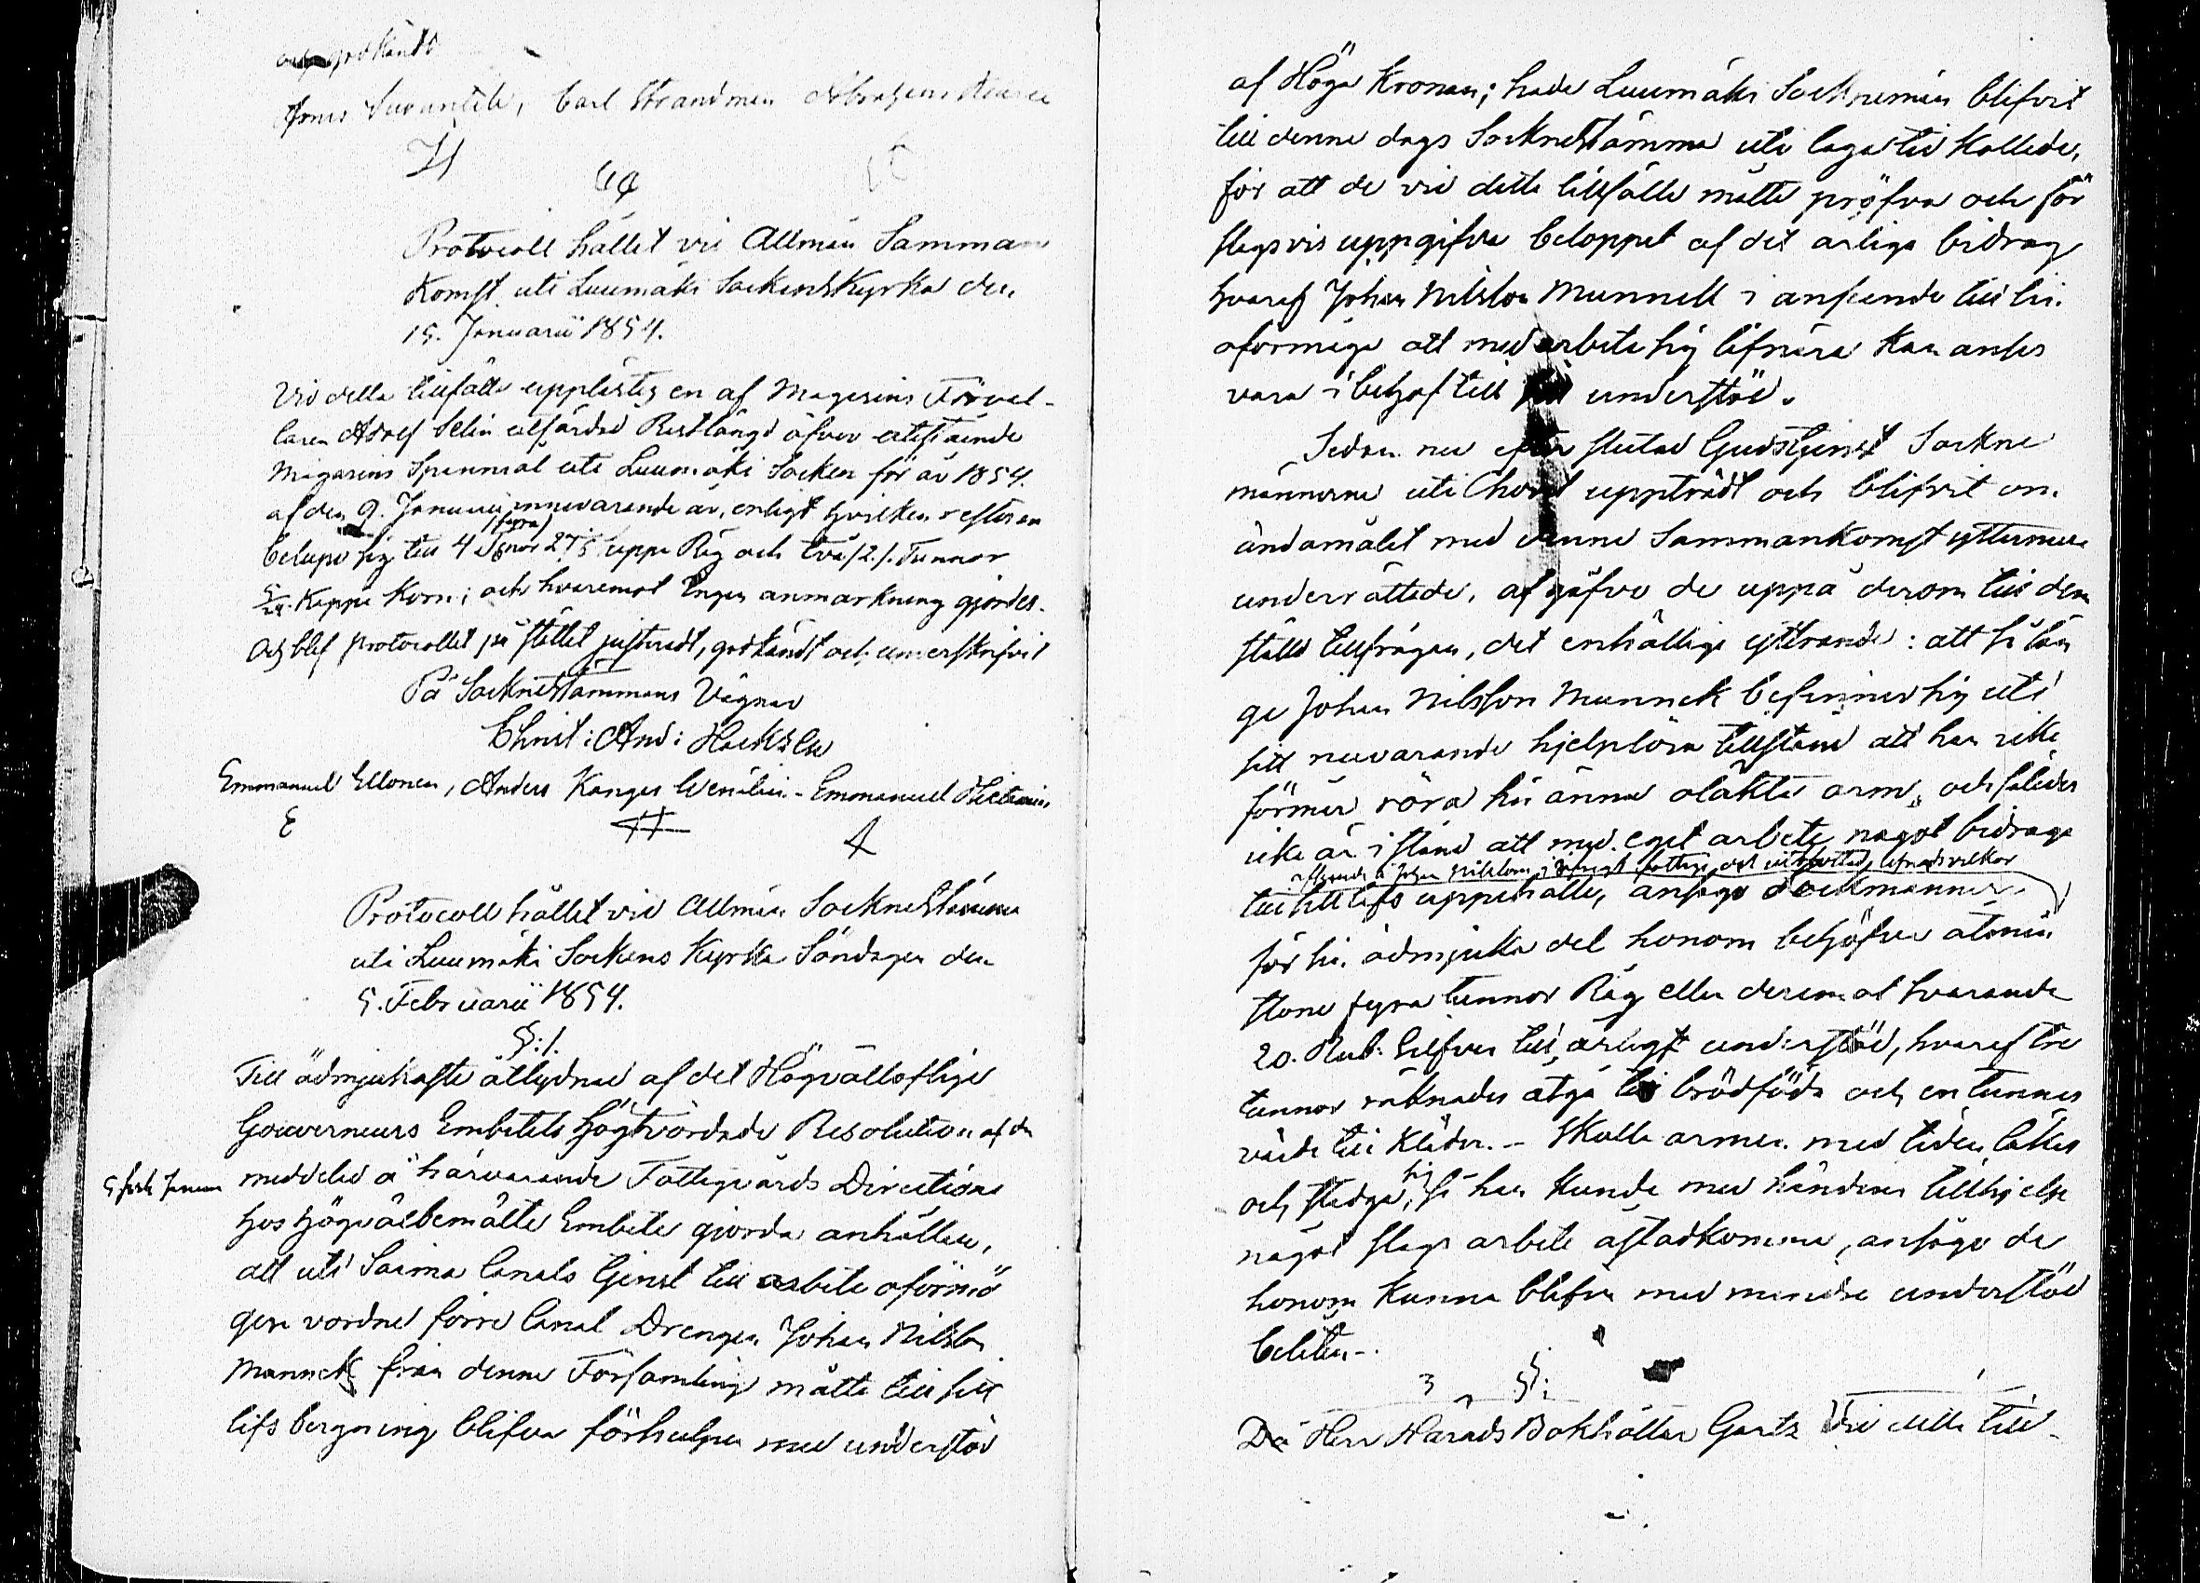 och godkändt
Jonas Suuntila, Carl Strandman Abraham
Protocoll hållet vid Allmän Samman
Komst uti Luumäki Sockens Kyrka den
15. Januarii 1854.
Vid detta tillfälle upplästes en af Magasins Förval-
taren Adolf Selin utfärdad Restlängd öfver utestående
Magasins Spannmål uti Luumäki Socken för år 1854.
af den 9. Januarii innevarande år, enligt hvilken resterna
(fyra)
belupo sig till 4 Tunnor kappe Råg och två /2./. Tunnor
Kappe Korn; och hvaremot Ingen anmärkning gjordes.
Och blef protocollet på stället justeradt, godkändt och underskrifvit
På Sockne Stämmans Vägnar
Christ: And: Hocksell
Emmanuel Ellonen, Anders Kangas Wenäläin - Emmanuel Hietanin
E
Protocoll hållet vid Allmän Sockne Stämma
uti Luumäki Sockens Kyrka Söndagen den
5. Februarii 1854.
§:1.
Till ödmjukaste åtlydnad af det Högvälloflige
Gouverneurs Embetets högtvördade Resolution af den
5 sistl. Januarii
meddelad å härvarande Fattigvårds Directions
hos högvälbemälte Embete gjorda anhållan,
att uti Saima Canals tjenst till arbete oförmö
gen vordne förre Canal Drengen Johan Nilsson
Munnck från denne Församling måtte till sitt
lifs bergning blifva förhulpen med understöd
af Höga Kronan; hade Luumäki Sockneman blifvit
till denne dags Socknestämma uti laga tid Kallade,
för att de vid detta tillfälle måtte pröfva och för
slagsvis uppgifva beloppet af det årliga bidrag
hvaraf Johan Nilsson Munnck i anseende till sin
oförmåga att med arbete sig lifnära kan anses
vara i behof till understöd.
Sedan nu efter slutad Gudstjenst Sockne
männerne uti Choret uppträdt och blifvit om
ändamålet med denne Sammankomst yttermera
underrättade, afgåfvo de uppå derom till dem
ställd tillfrågan, det enhälliga yttrande: att så län
ge Johan Nilsson Munnck befinner sig uti
sitt nuvarande hjelplösa tillstånd att han icke
förmår röra sin ännu oläkta arm, och således
icke är i stånd att med eget arbete något bidraga
afseende å Johan Nilssons i öfrigt fattiga och lefnadsvilkor
till sitt lifs uppehälle, ansågo Sockmännen
för sin ödmjuka del honom behöfva åtmin
stone fyra tunnor Råg eller deremot svarande
20. Rub: Silfver till årligt understöd, hvaraf tre
tunnor räknades åtgå till brödföda och en tunnas
värde till Kläder. - Skulle armen med tiden läkas
sig
och stadga, så han kunde med händers tillhjelp
något slags arbete åstadkomma, ansågo de
honom kunna blifva med mindre understöd
beläten -.
§:
Då Herr Härads Bokhållar Gartz Vid detta till-